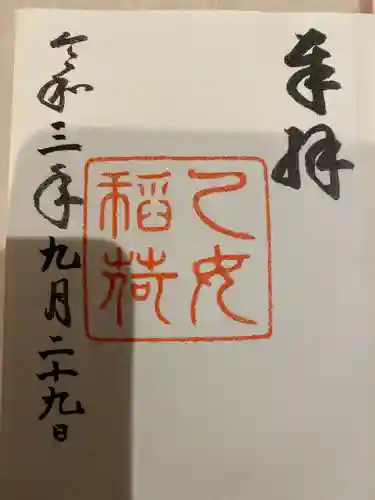 奉拝
乙女
稲荷
令和三年九月二十九日